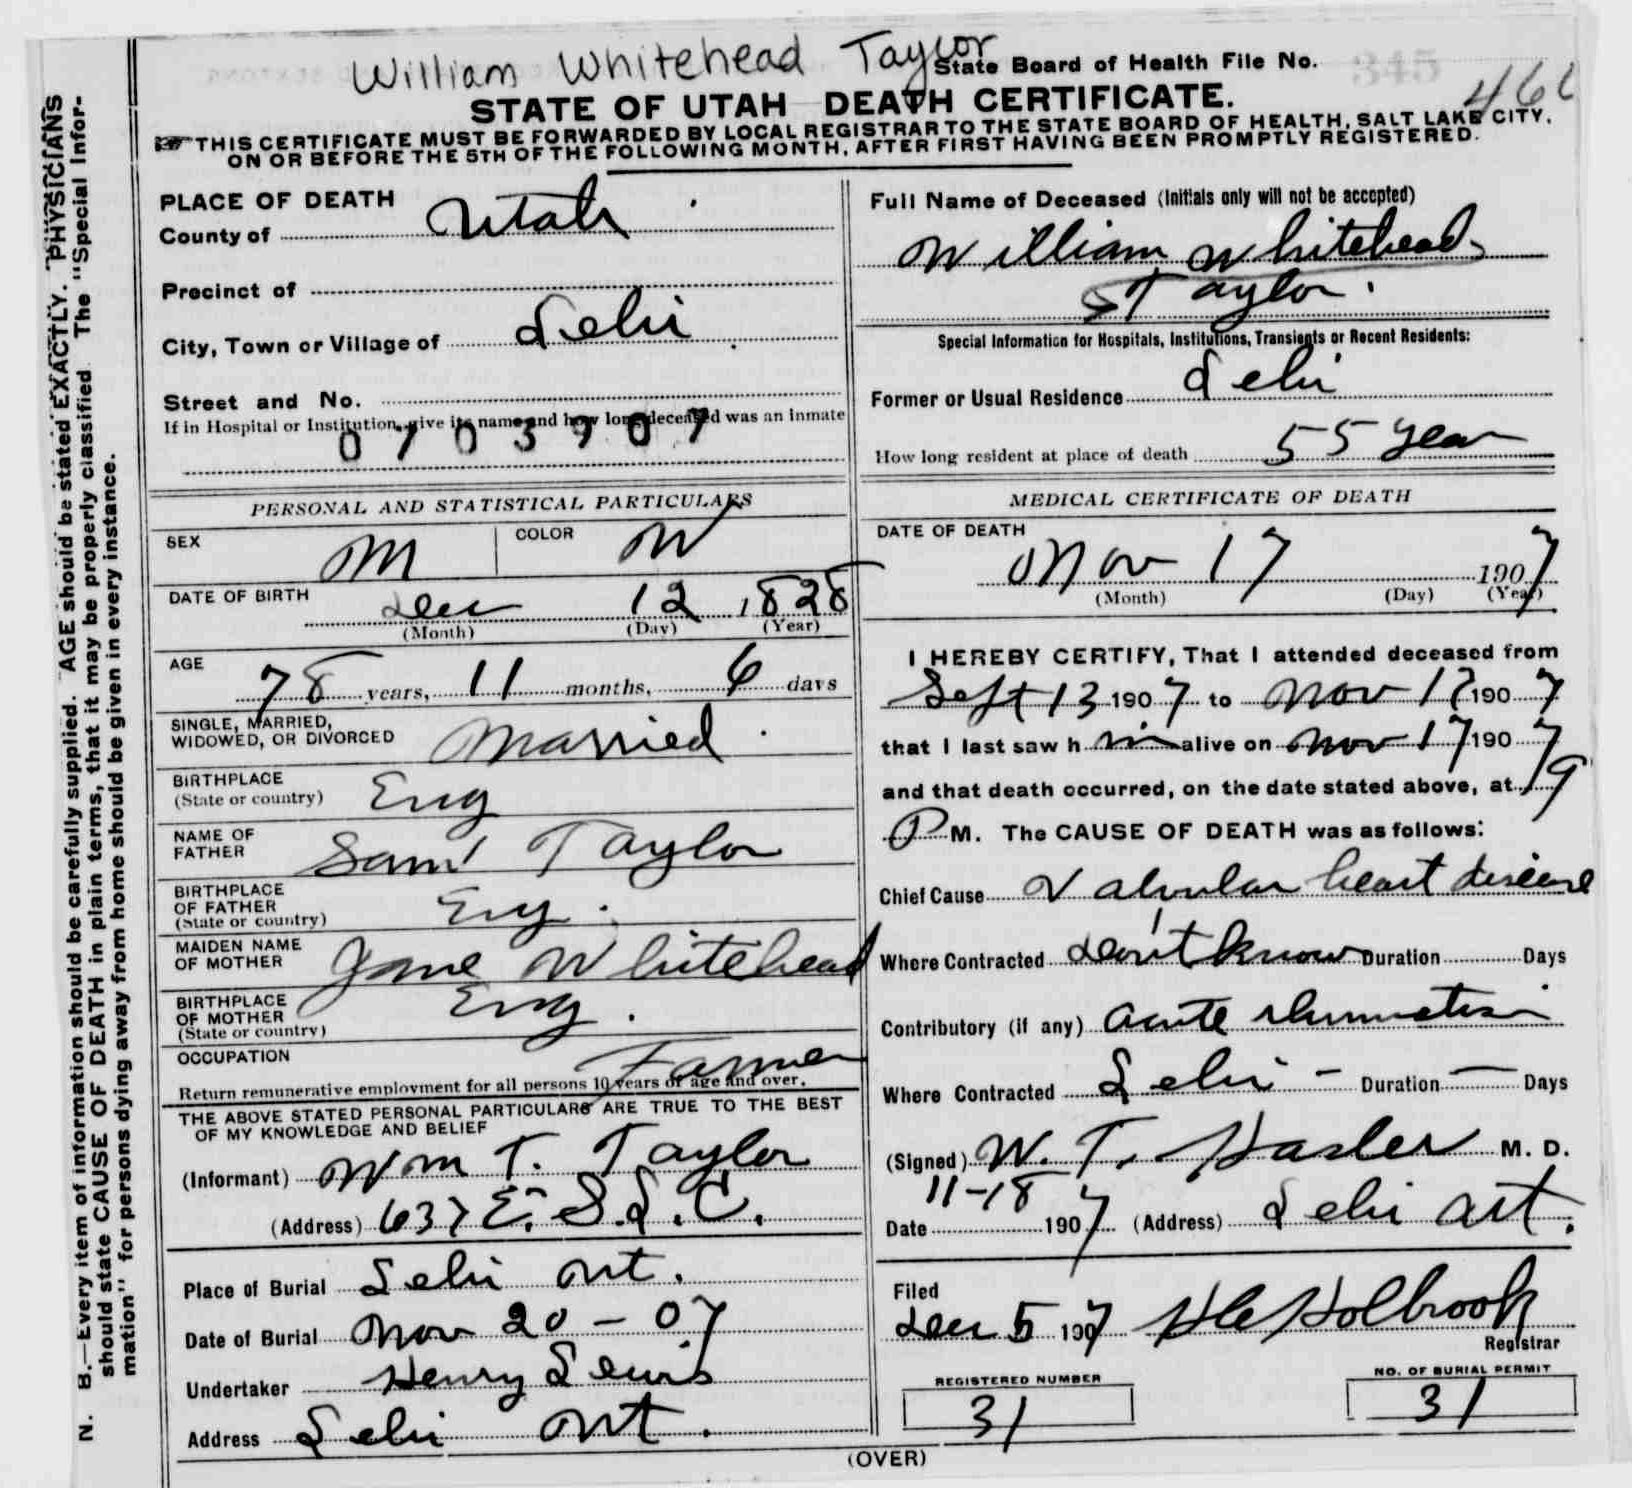 William Whitehead Taylor
State Board of Health File No.
345
STATE OF UTAH DEATH CERTIFICATE.
THIS CERTIFICATE MUST BE FORWARDED BY LOCAL REGISTRAR TO THE STATE BOARD OF HEALTH, SALT LAKE CITY,
ON OR BEFORE THE 5TH OF THE FOLLOWING MONTH, AFTER FIRST HAVING BEEN PROMPTLY REGISTERED.
N. B.—Every item of information should be carefully supplied. AGE should be stated EXACTLY. PHYSICIANS
should state CAUSE OF DEATH in plain terms, that it may be properly classified The "Special Infor-
mation" for persons dying away from home should be given in every instance.
PLACE OF DEATH
County of Utah
Precinct of
City, Town or Village of Lehi
Street and No.
If in Hospital or Institution, give its name and how long deceased was an inmate
0703907
PERSONAL AND STATISTICAL PARTICULARS
SEX M COLOR W
DATE OF BIRTH
Dec 12, 1828
(Month) (Day) (Year)
AGE
78 years, 11 months, 6 days
SINGLE, MARRIED,
WIDOWED, OR DIVORCED Married
BIRTHPLACE
(State or country) Eng
NAME OF
FATHER Saml Taylor
BIRTHPLACE
OF FATHER
(State or country) Eng.
MAIDEN NAME
OF MOTHER Jane Whitehead
BIRTHPLACE
OF MOTHER
(State or country) Eng.
OCCUPATION Farmer
Return remunerative employment for all persons 10 years of age and over.
THE ABOVE STATED PERSONAL PARTICULARS ARE TRUE TO THE BEST
OF MY KNOWLEDGE AND BELIEF
(Informant) Wm T. Taylor
(Address) 637 E. S.L.C.
Place of Burial Lehi Ut.
Date of Burial Nov 20-07
Undertaker Henry Lewis
Address Lehi Ut.
Full Name of Deceased (Initials only will not be accepted)
William Whitehead
Taylor.
Special Information for Hospitals, Institutions, Transients or Recent Residents:
Former or Usual Residence Lehi
How long resident at place of death 55 year
MEDICAL CERTIFICATE OF DEATH
DATE OF DEATH
Nov 17 1907
(Month) (Day) (Year)
I HEREBY CERTIFY, That I attended deceased from
Sept 13 1907 to Nov 17 1907
that I last saw h im alive on Nov 17 1907
and that death occurred, on the date stated above, at
P M. The CAUSE OF DEATH was as follows:
Chief Cause Valvular heart disease
Where Contracted don't know Duration Days
Contributory (if any) acute rheumatism
Where Contracted Lehi - Duration — Days
(Signed) W. T. Hasler M. D.
11-18
Date 1907 (Address) Lehi Ut.
Filed
Dec 5 1907 Holbrook
Registrar
REGISTERED NUMBER
31
NO. OF BURIAL PERMIT
31
(OVER)